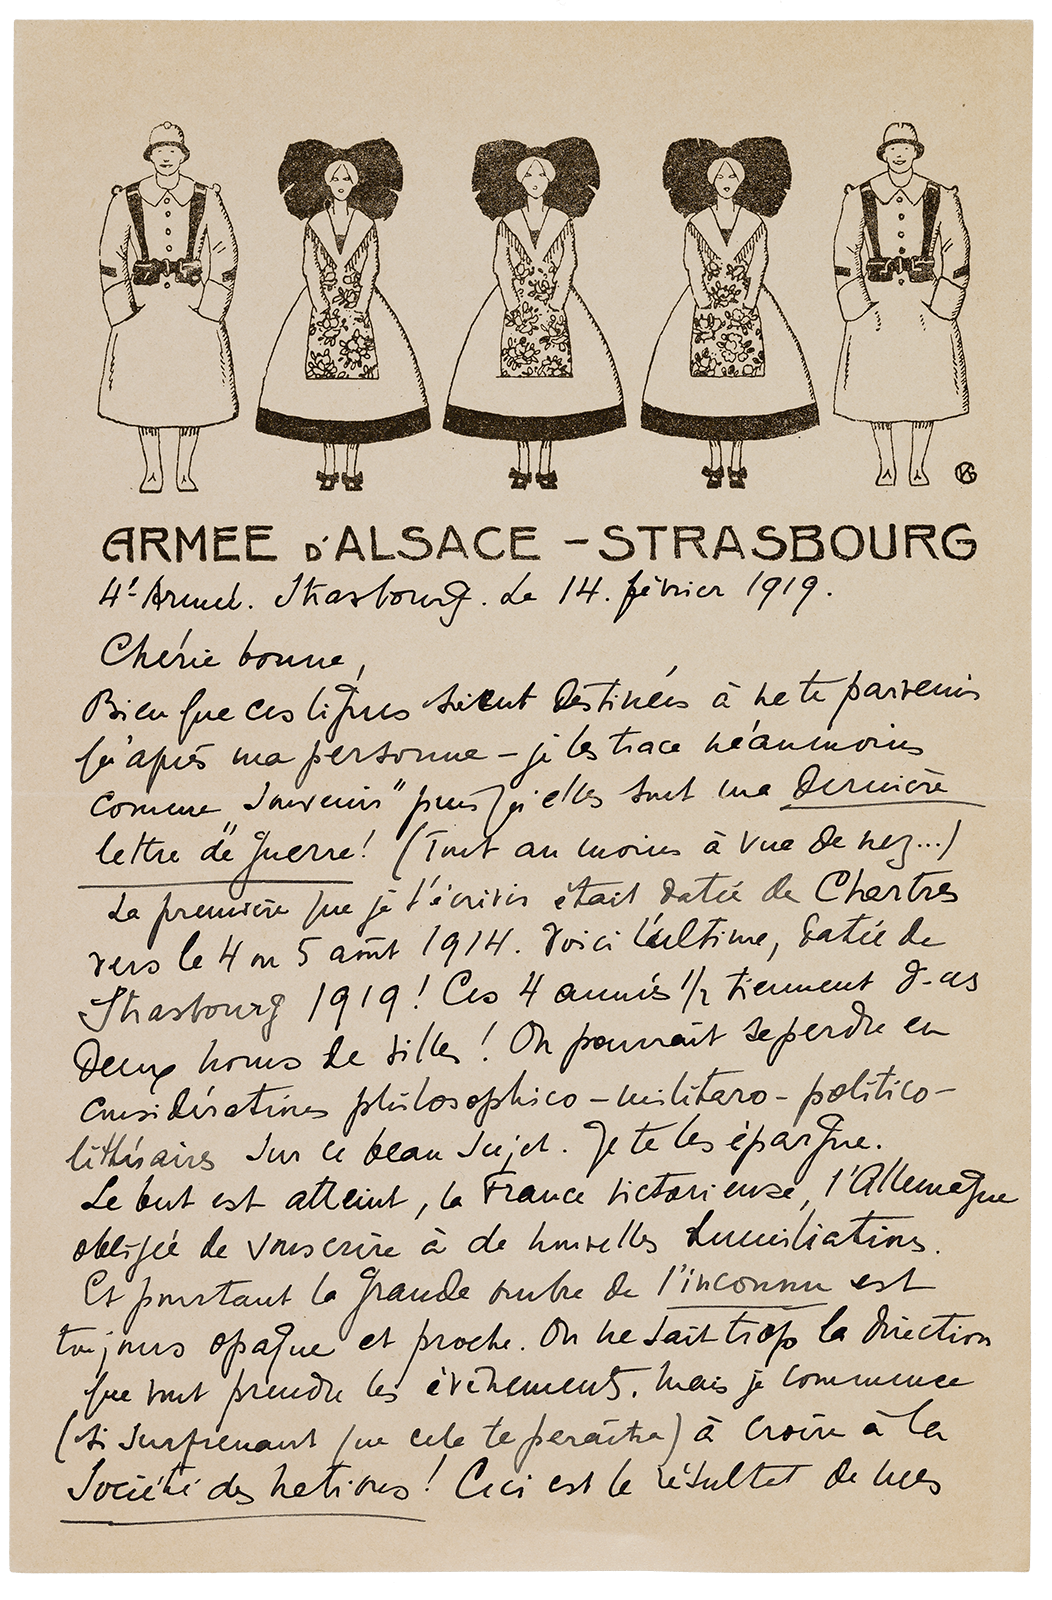 ARMEE D'ALSACE - STRASBOURG
4e Armée. Strasbourg. Le 14. février 1919.
Chérie bonne,
Bien que ces lignes soient destinées à ne te parvenir
qu'après ma personne - je les trace néanmoins
comme "souvenir" puisqu'elles sont ma dernière
lettre de "guerre"! (Tout au moins à vue de nez...)
La première que je t'écrivis était datée de Chartres
vers le 4 ou 5 août 1914. Voici l'ultime, datée de
Strasbourg 1919! Ces 4 années 1/2 tiennent d-as
deux noms de villes! On pourrait se perdre en
considérations philosophico-militaro-politico-
littéraires sur ce beau sujet. Je te les épargne.
Le but est atteint, la France victorieuse, l'Allemagne
obligée de souscrire à de nouvelles humiliations.
Et pourtant la grande ombre de l'inconnu est
toujours opaque et proche. On ne sait trop la direction
que vont prendre les évènements. Mais je commence
(si surprenant que cela te paraîtra) à croire à la
Société des nations! Ceci est le résultat de mes